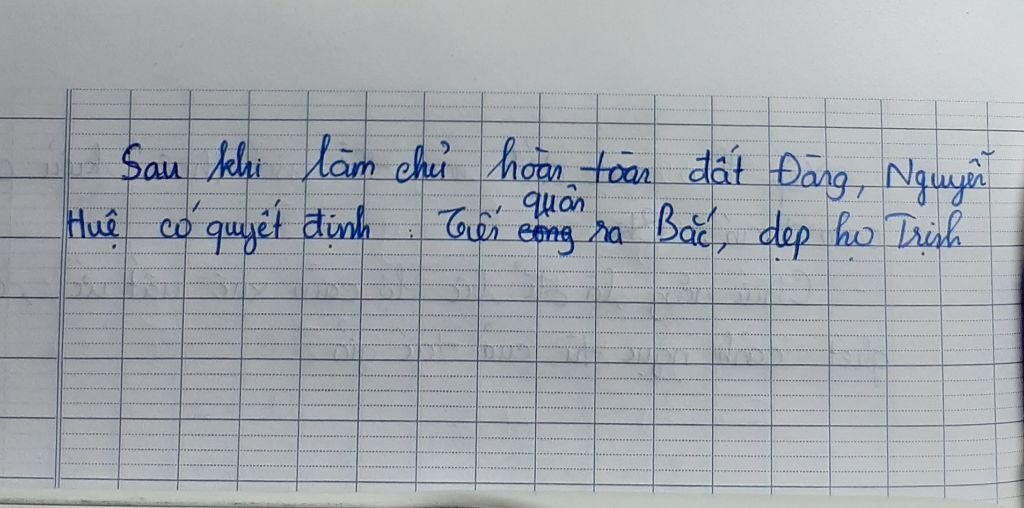 Sau khi làm chủ hoàn toàn đất Đàng, Nguyễn
Huệ có quyết định : Tiến quân ra Bắc, dẹp họ Trịnh